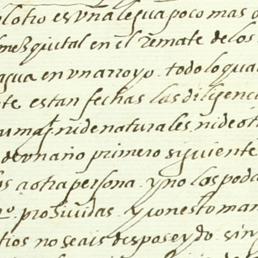 lo otro es vna legua poco mas o
mezquital en el Remate de los
agua en vn arroyo. todo lo qual
te estan fechas las diligenci
uma ni de naturales, ni de ot
de vn año primero siguiente
os a otra persona. y no los pod
proҳividas. y con esto man
tios no seais desposeydo. sin